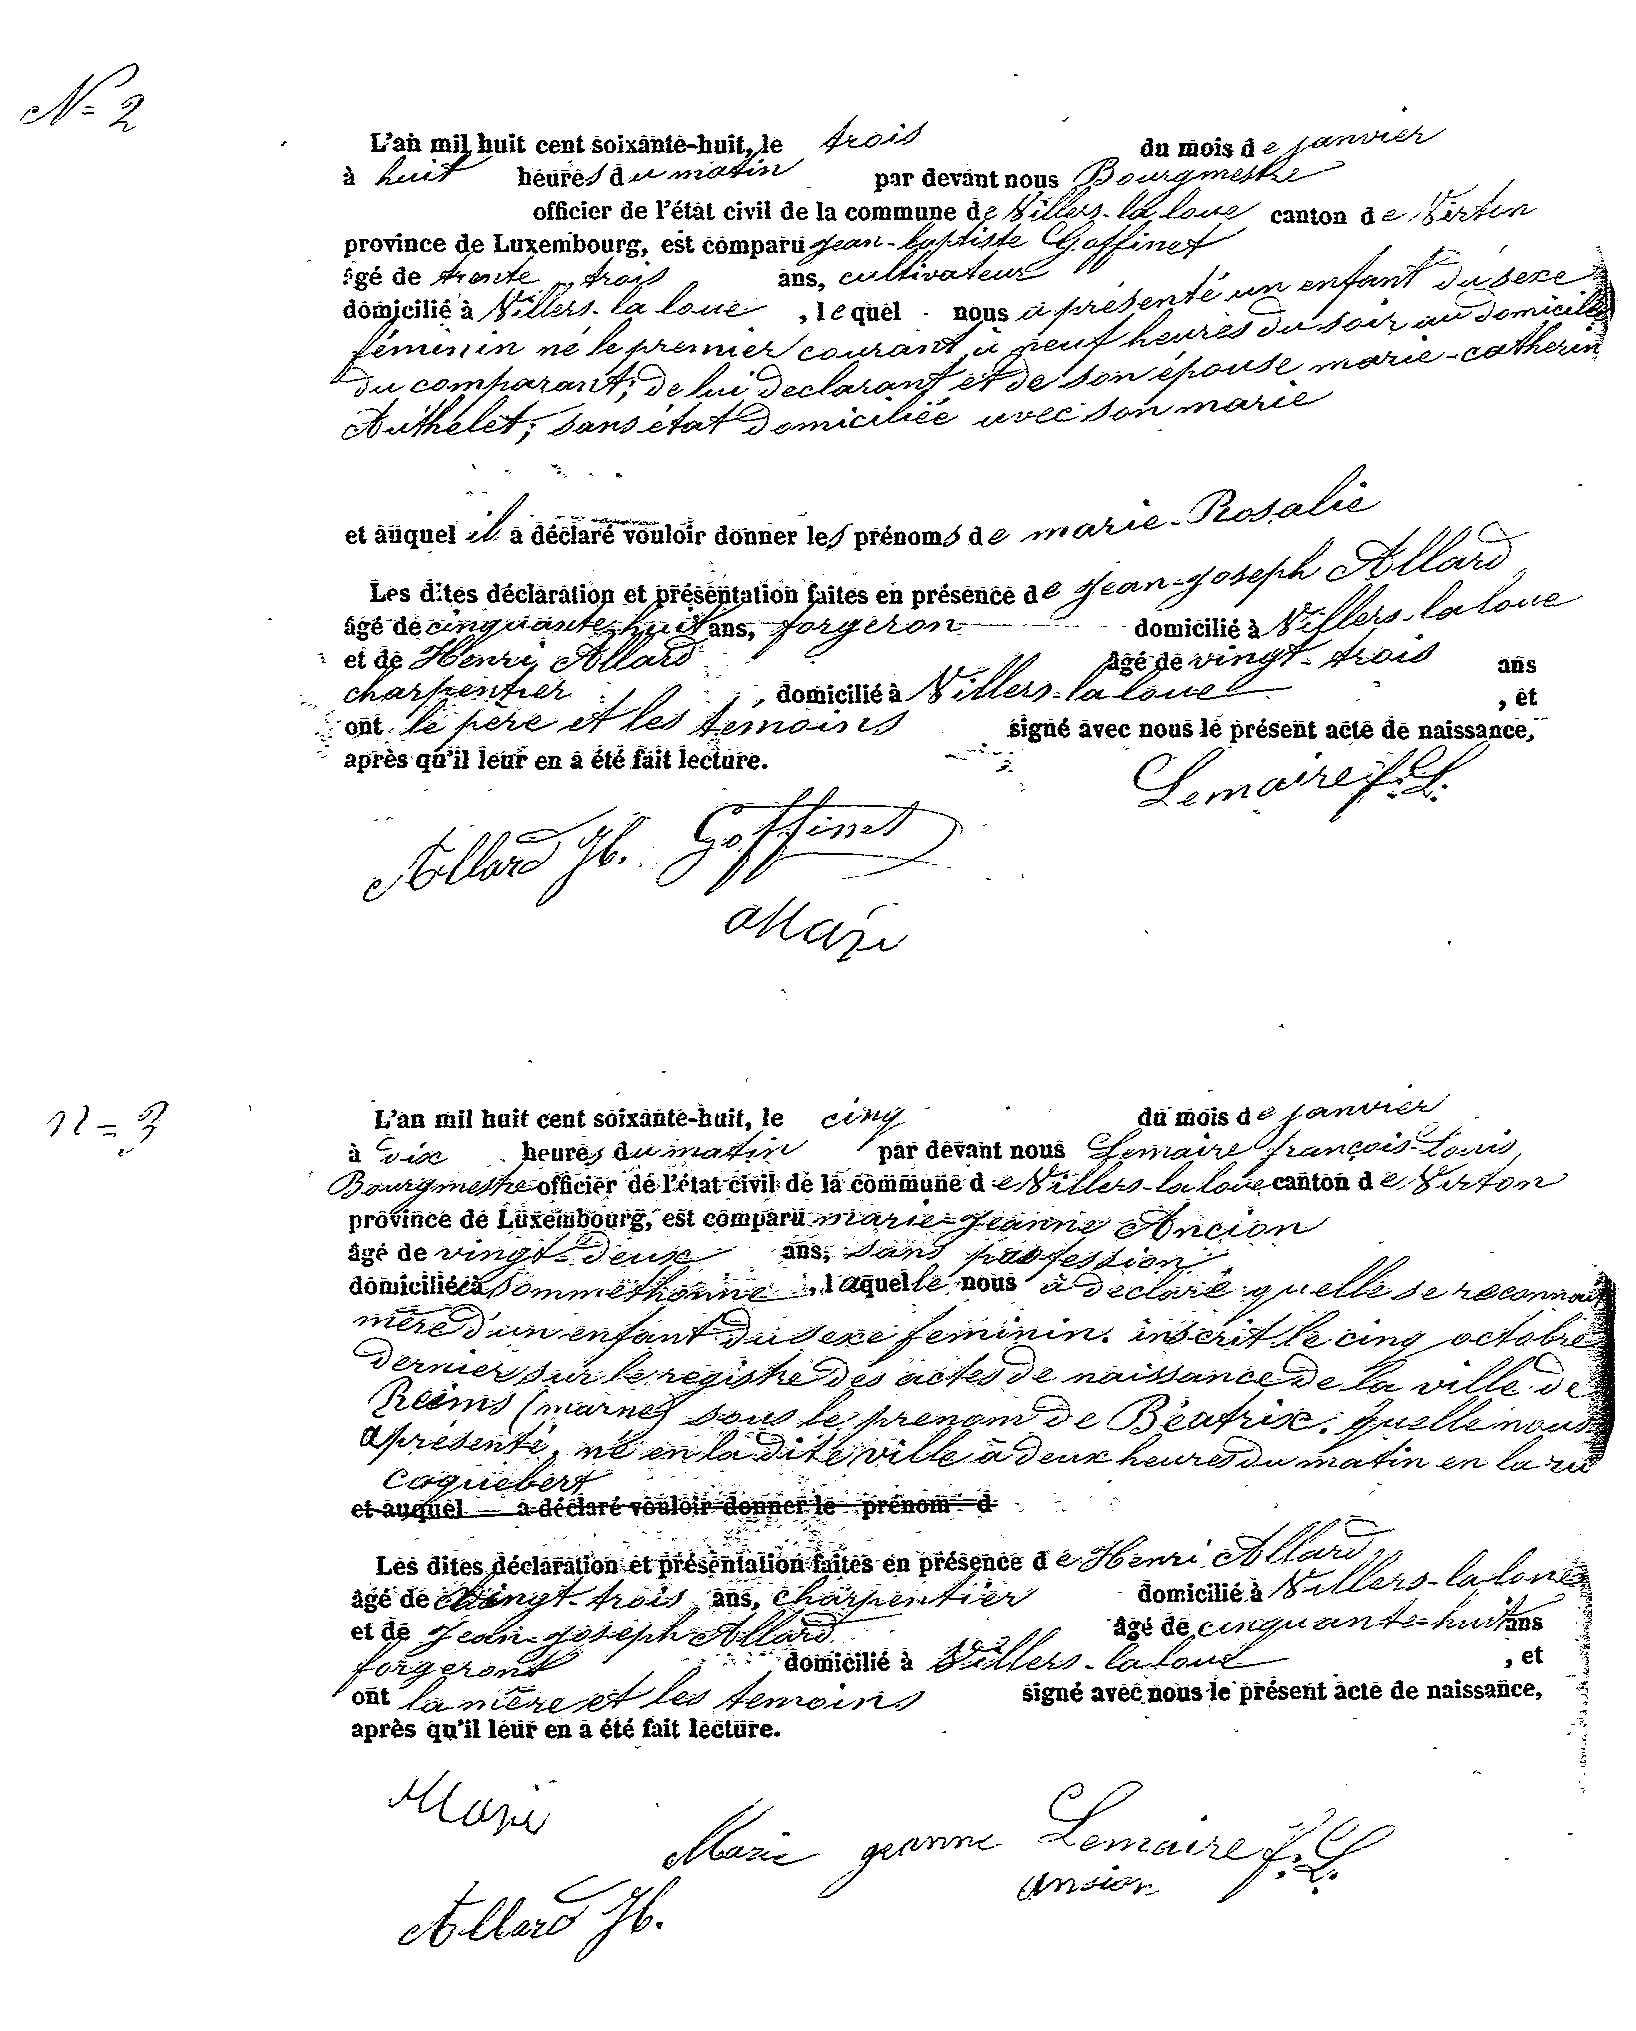 N= 2
L'an mil huit cent soixante-huit, le trois du mois de janvier
à huit heures du matin par devant nous Bourgmestre
officier de l'état civil de la commune de Villers-la loue canton de Virton
province de Luxembourg, est comparu jean-baptiste Goffinet
âgé de trente trois ans, cultivateur
domicilié à Villers-la loue, lequel nous a présenté un enfant du sexe
féminin né le premier courant à neuf heures du soir au domicile
du comparant; de lui declarant et de son épouse marie-catherin
Authelet; sans état domiciliée avec son marie
et auquel il a déclaré vouloir donner les prénoms de marie-Rosalie
Les dites déclaration et présentation faites en présence de jean-joseph Allard
âgé de cinquante-huit ans, forgeron domicilié à Villers-la loue
et de Henri Allard âgé de vingt-trois ans
charpentier, domicilié à Villers-la loue, et
ont le père et les témoins signé avec nous le présent acte de naissance,
après qu'il leur en a été fait lecture.
Lemaire f. L.
Allard Goffinet
n=3
L'an mil huit cent soixante-huit, le cinq du mois de janvier
à dix heures du matin par devant nous Lemaire françois-Louis,
Bourgmestre officier de l'état civil de la commune de Villers-la loue canton de Virton
province de Luxembourg, est comparu marie-jeanne Ancion
âgé de vingt-deux ans, sans profession,
domiciliée à Sommethonne, laquelle nous à declaré quelle se reconnait
mère d'un enfant du sexe feminin. inscrit le cinq octobre
dernier sur le registre des actes de naissance de la ville de
Reims (marne) sous le prenom de Béatrix. quelle nous
a présenté, né en la dite ville à deux heures du matin en la ru
coquebert
et auquel a déclaré vouloir donner le prénom d
Les dites déclaration et présentation faites en présence de Henri Allard,
âgé de vingt-trois ans, charpentier domicilié à Villers-la loue
et de jean-joseph Allard âgé de cinquante-huit ans
forgeront domicilié à Villers-la loue, et
ont la mère et les temoins signé avec nous le présent acte de naissance,
après qu'il leur en a été fait lecture.
Marie jeanne Lemaire f. L.
ansion
Allard